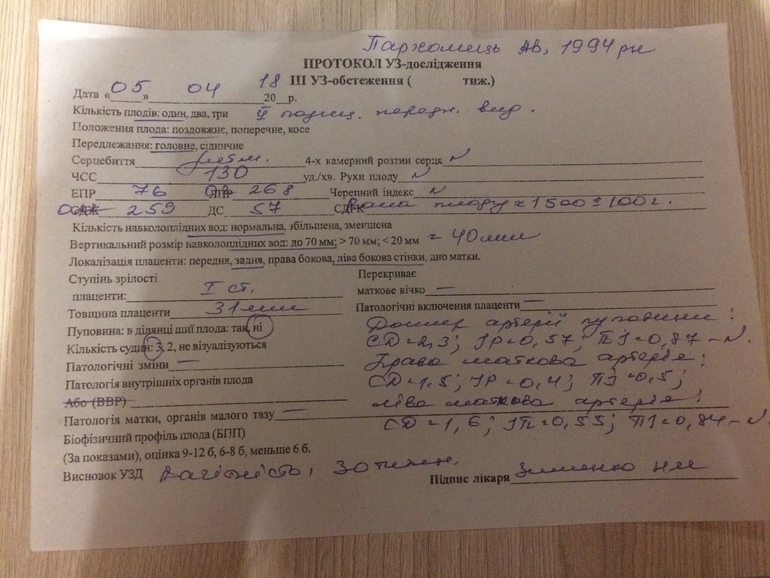 Пархомець АВ, 1994 рн
ПРОТОКОЛ УЗ-дослідження
III УЗ-обстеження ( тиж.)
Дата «05» 04 18 20__р.
Кількість плодів: один, два, три II позиц. передн. вид.
Положення плода: поздовжнє, поперечне, косе
Передлежання: головне, сідничне
Серцебиття ритм. 4-х камерний розтин серця N
ЧСС 130 уд./хв. Рухи плоду N
БПР 76 ЛПР 268 Черепний індекс N
259 ДС 57 СДГК Вага плоду ≈ 1500 ± 100 г.
Кількість навколоплідних вод: нормальна, збільшена, зменшена
Вертикальний розмір навколоплідних вод: до 70 мм; > 70 мм; < 20 мм = 40 мм
Локалізація плаценти: передня, задня, права бокова, ліва бокова стінки, дно матки.
Ступінь зрілості
плаценти: I ст.
Перекриває
маткове вічко —
Товщина плаценти 31 мм Патологічні включення плаценти —
Пуповина: в ділянці шиї плода: так, ні Доплер артерії пуповини:
Кількість судин: 3, 2, не візуалізуються СД = 2,3; ІР = 0,57; ПІ = 0,87 – N.
Патологічні зміни — Права маткова артерія:
Патологія внутрішніх органів плода СД = 1,5; ІР = 0,4; ПІ = 0,5;
Або (ВВР) Ліва маткова артерія:
Патологія матки, органів малого тазу — СД = 1,6; ІР = 0,55; ПІ = 0,84 – N.
Біофізичний профіль плода (БПП)
(За показами), оцінка 9-12 б, 6-8 б, меньше 6 б.
Висновок УЗД Вагітність, 30 тижн. Підпис лікаря